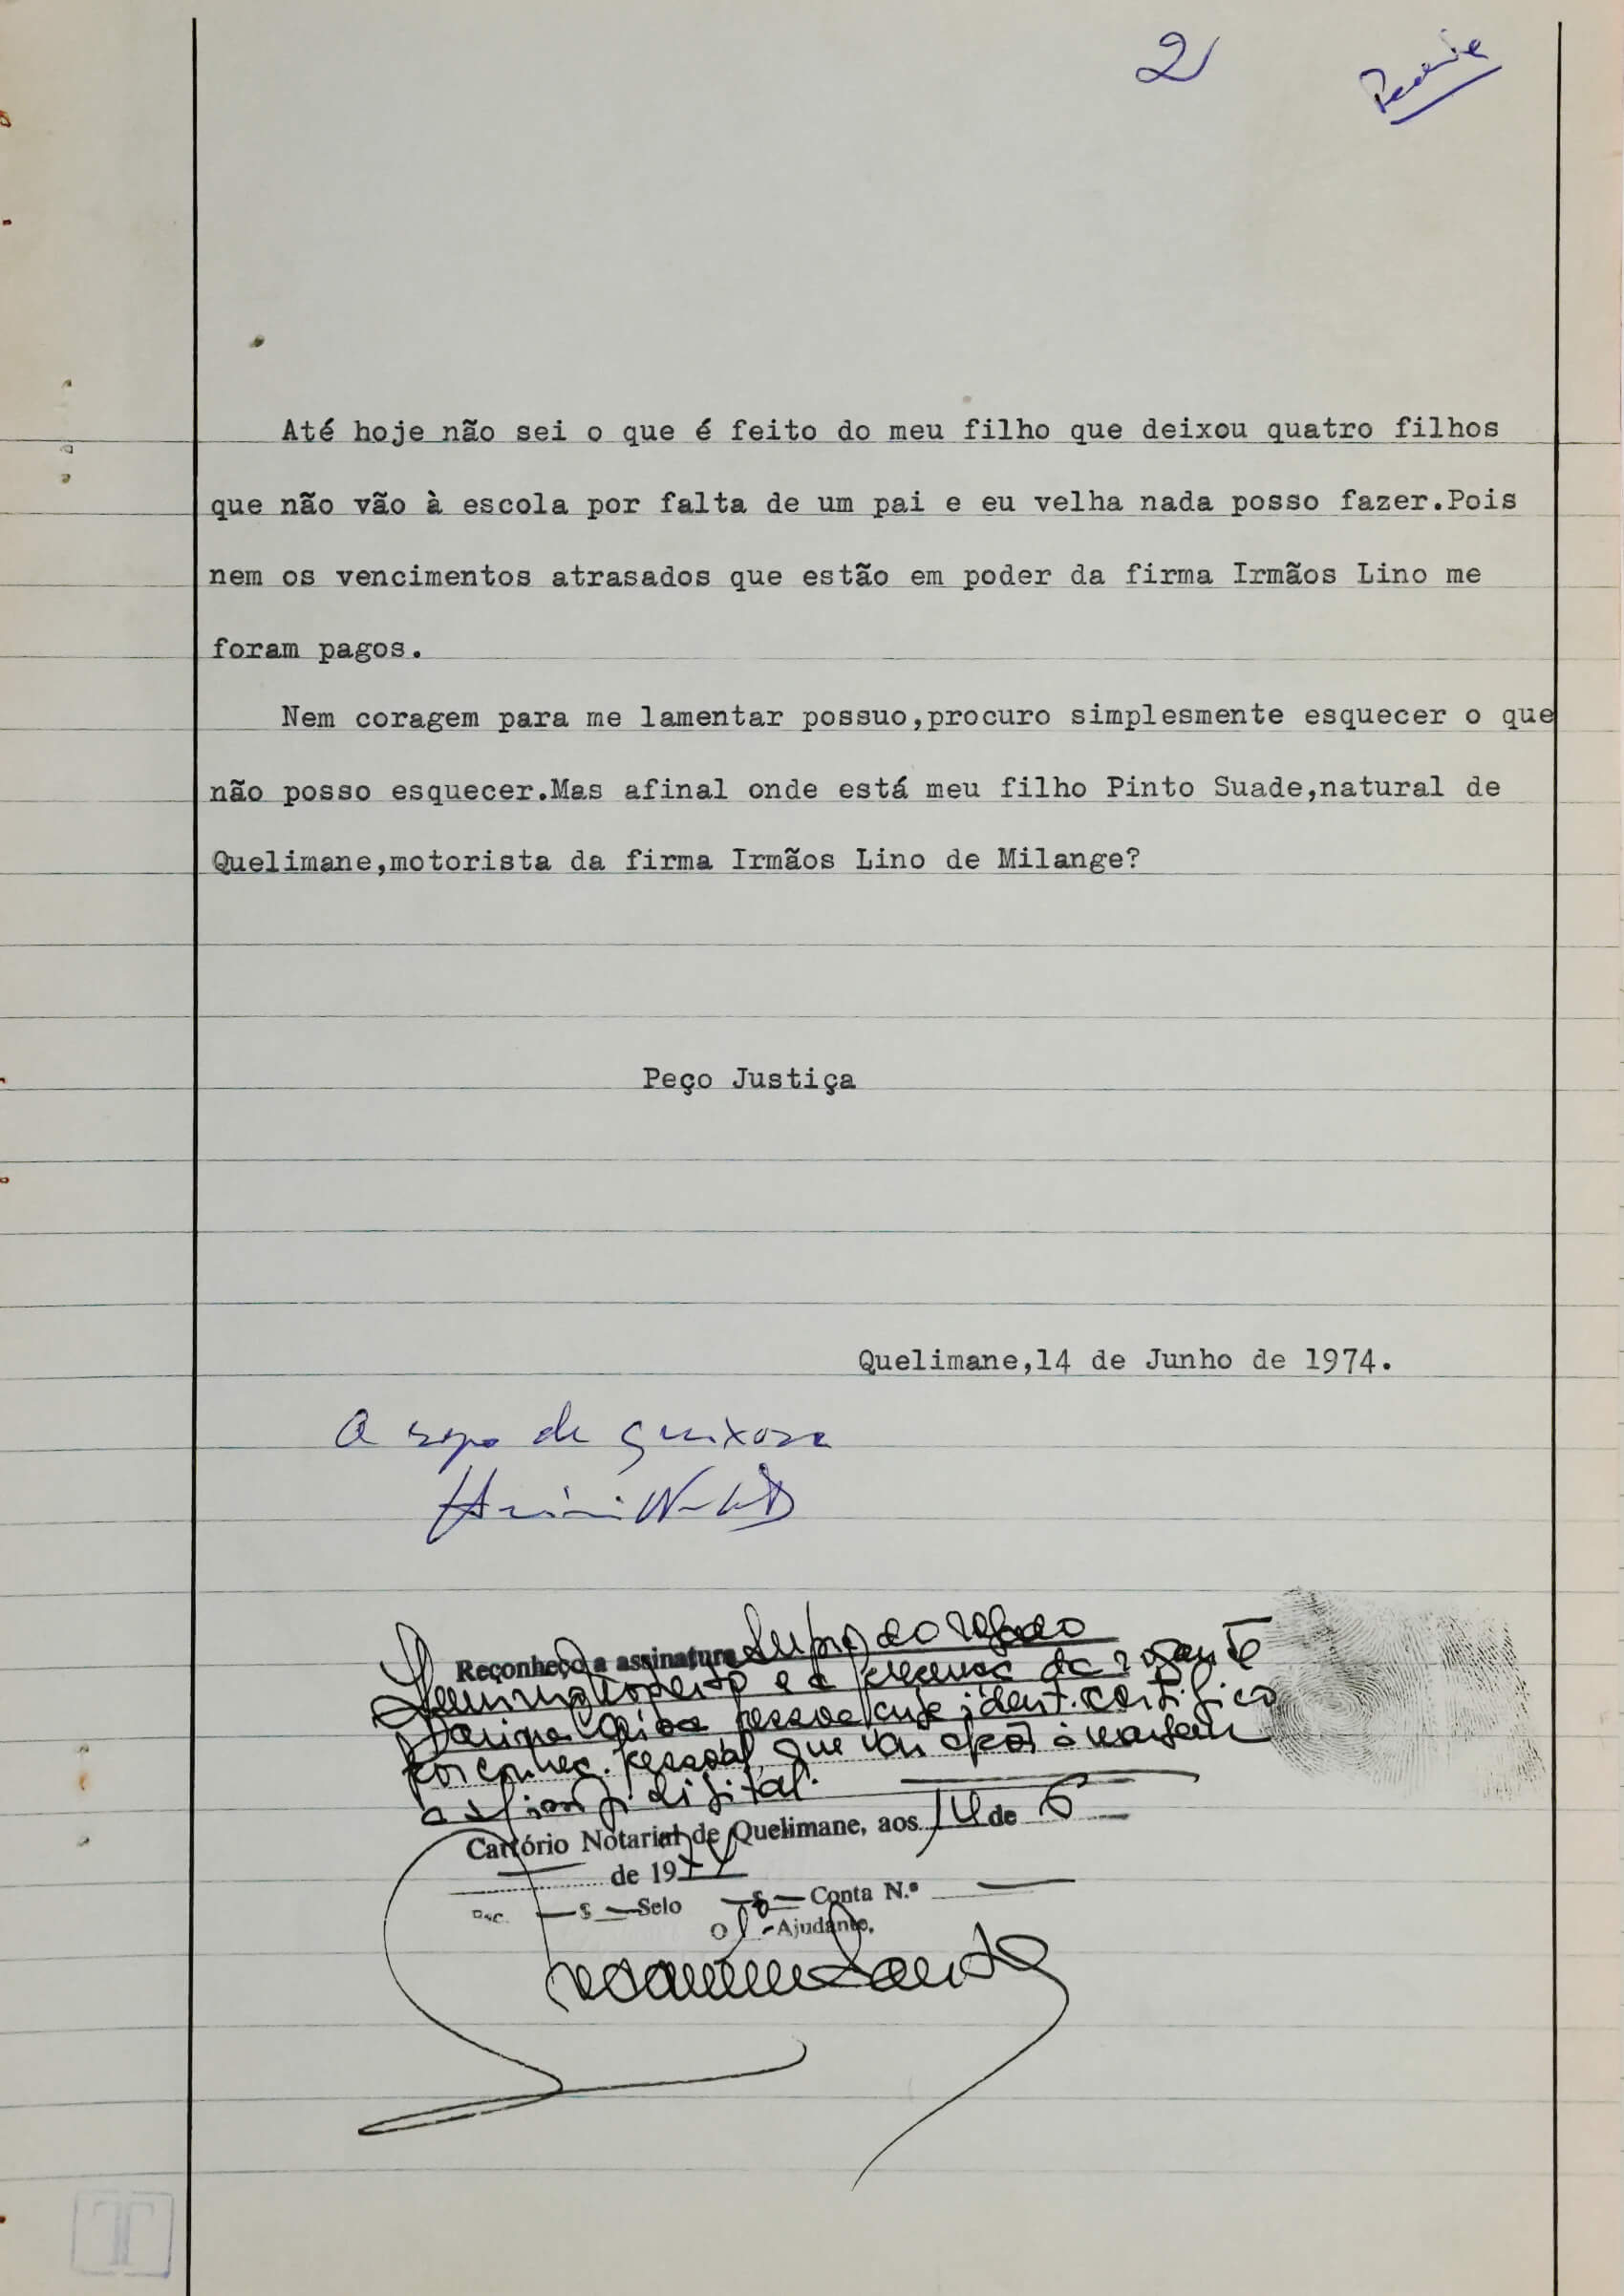 2
Até hoje não sei o que é feito do meu filho que deixou quatro filhos
que não vão à escola por falta de um pai e eu velha nada posso fazer.Pois
nem os vencimentos atrasados que estão em poder da firma Irmãos Lino me
foram pagos.
Nem coragem para me lamentar possuo,procuro simplesmente esquecer o que
não posso esquecer.Mas afinal onde está meu filho Pinto Suade,natural de
Quelimane,motorista da firma Irmãos Lino de Milange?
Peço Justiça
Quelimane,14 de Junho de 1974.
A rogo da queixosa
Reconheço a assinatura supra do rogado
e a presença da rogante
pessoa cuja ident. certifico
por conhec. pessoal, que vai apôr à margem
a s/ imp. digital.
Cartório Notarial de Quelimane, aos 14 de 6
de 1974
Esc. — $ — Selo — $ — Conta N.º —
O 1.º Ajudante,
T